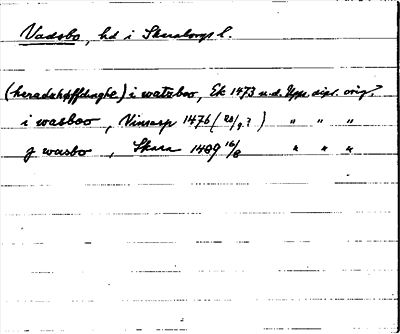 Vadsbo, hd i Skaraborgs l.
(heradzhöffdinghe) i watzboo, Ek 1473 u.d. Upps. dipl. orig.
i wasboo, Vinsarp 1476 (20/9?) " " "
g wasbo, Skara 1489 16/8 " " "